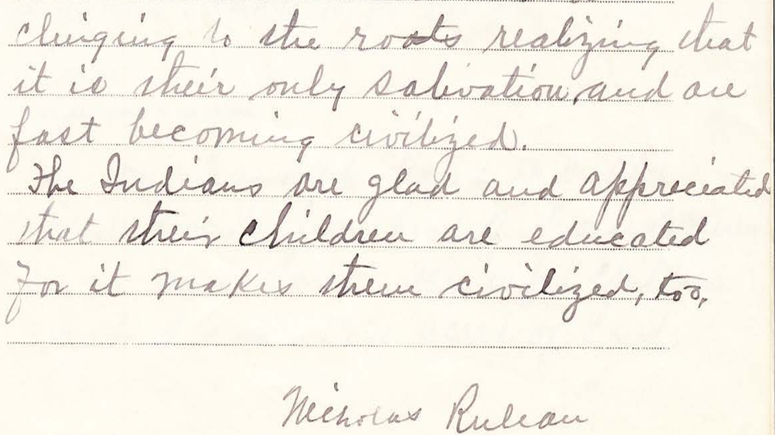 clinging to the roots realizing that
it is their only salivation, and are
fast becoming civilized.
The Indians are glad and appreciated
that their children are educated
for it makes them civilized, too,
Nicholas Ruleau